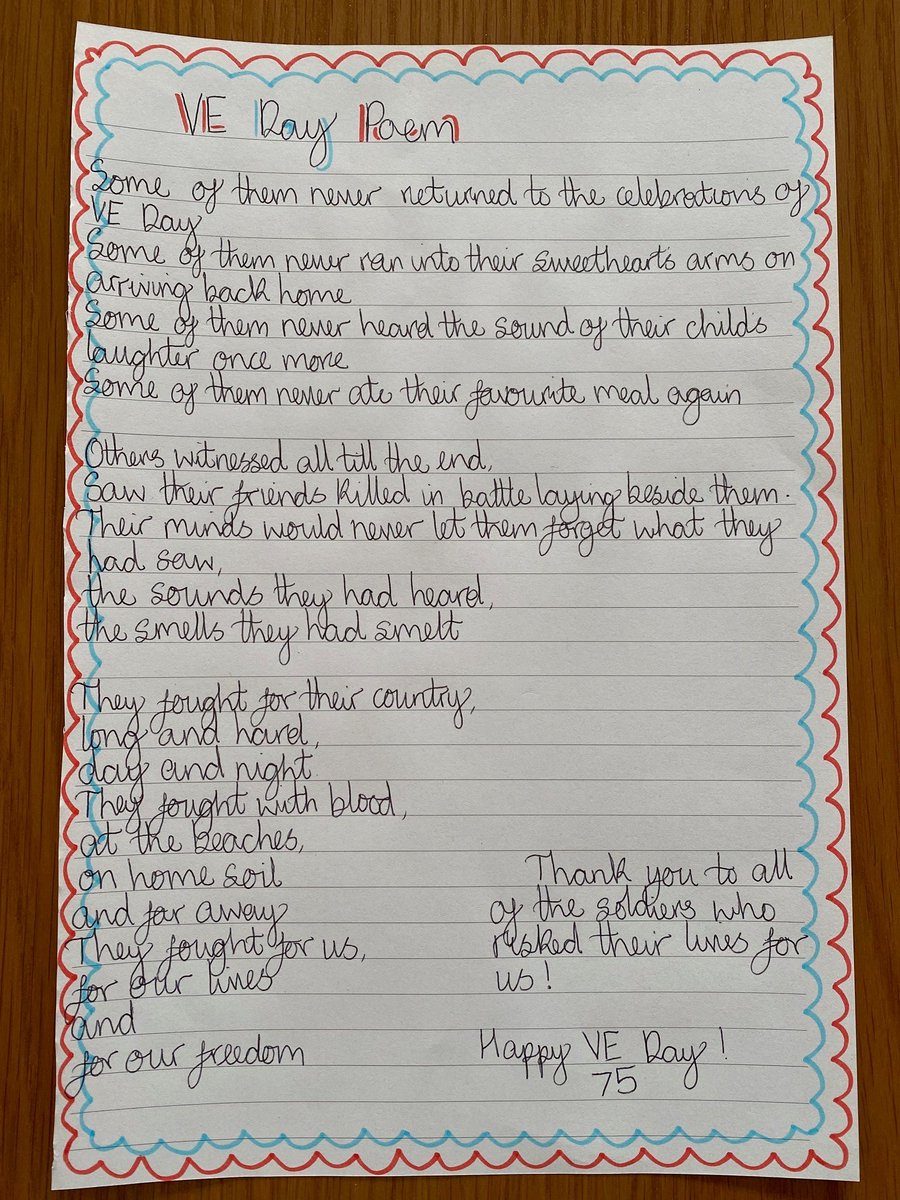 VE Day Poem
Some of them never returned to the celebrations of
VE Day
Some of them never ran into their sweethearts arms on
arriving back home
Some of them never heard the sound of their childs
laughter once more
Some of them never ate their favourite meal again
Others witnessed all till the end,
Saw their friends killed in battle laying beside them.
Their minds would never let them forget what they
had saw,
the sounds they had heard,
the smells they had smelt
They fought for their country,
long and hard,
day and night
They fought with blood,
at the beaches,
on home soil
and far away
They fought for us,
for our lives
and
for our freedom
Thank you to all
of the soldiers who
risked their lives for
us!
Happy VE Day!
75